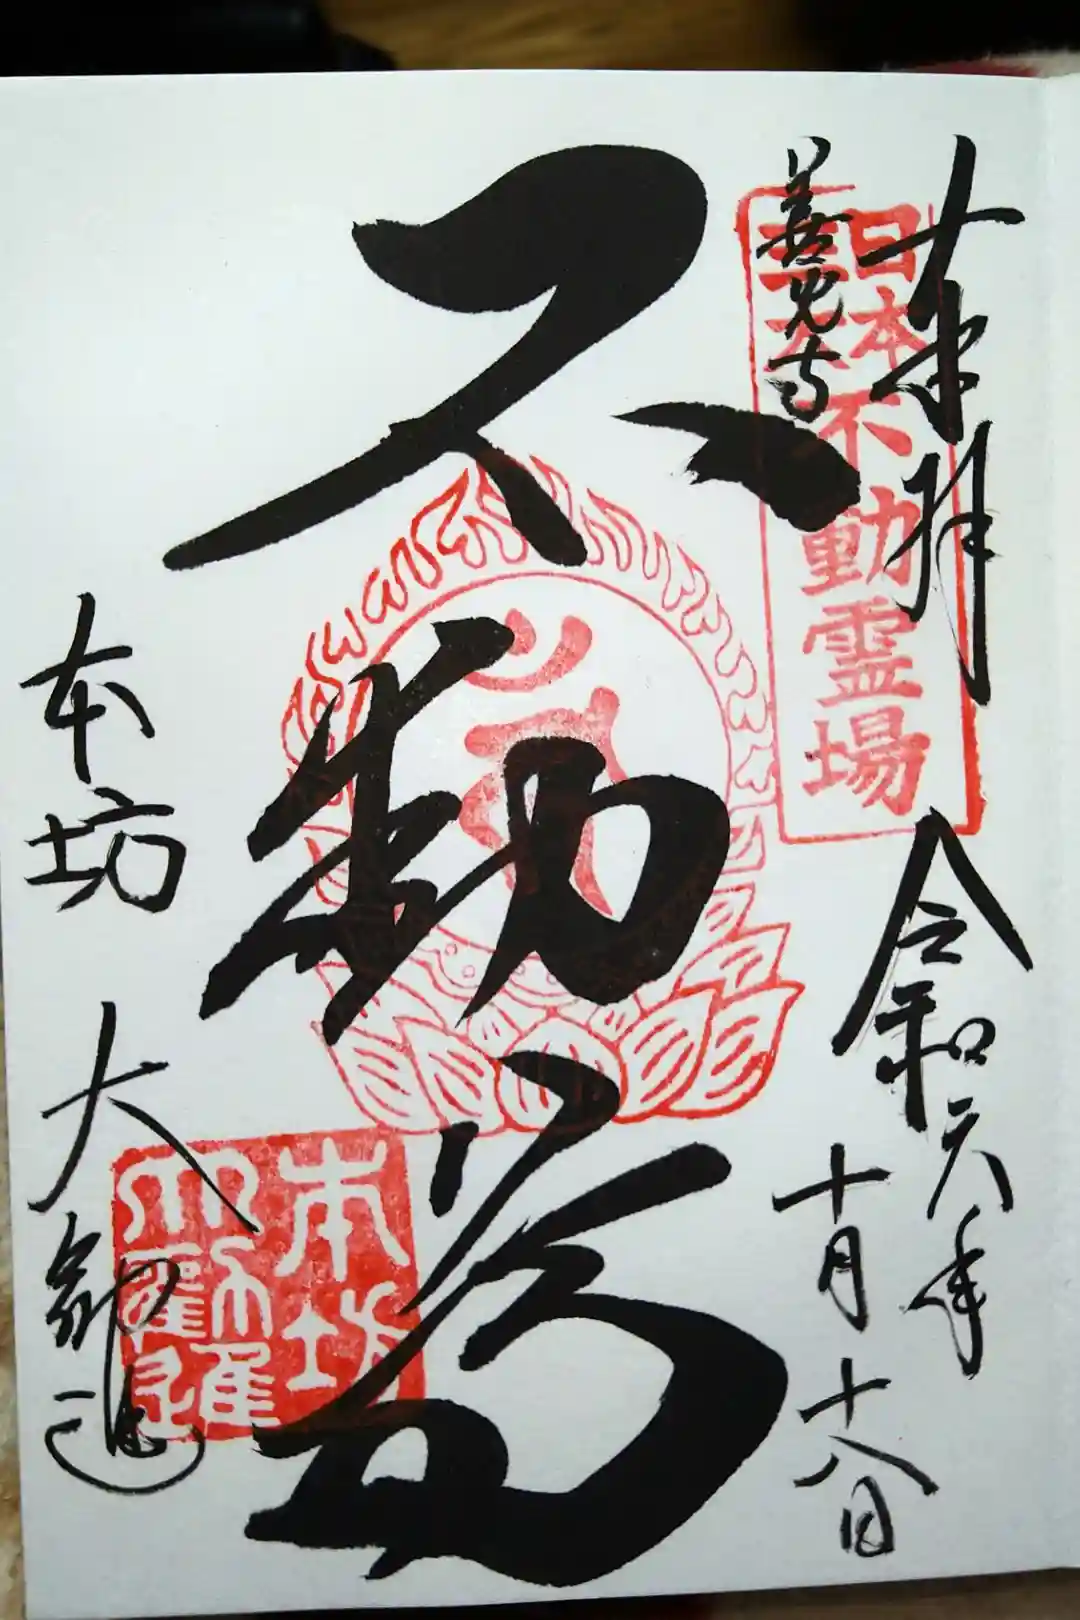 奉拝
令和六年
十月十八日
善光寺
日本三大不動霊場
不動尊
本坊 大勧進
本坊
大勧進